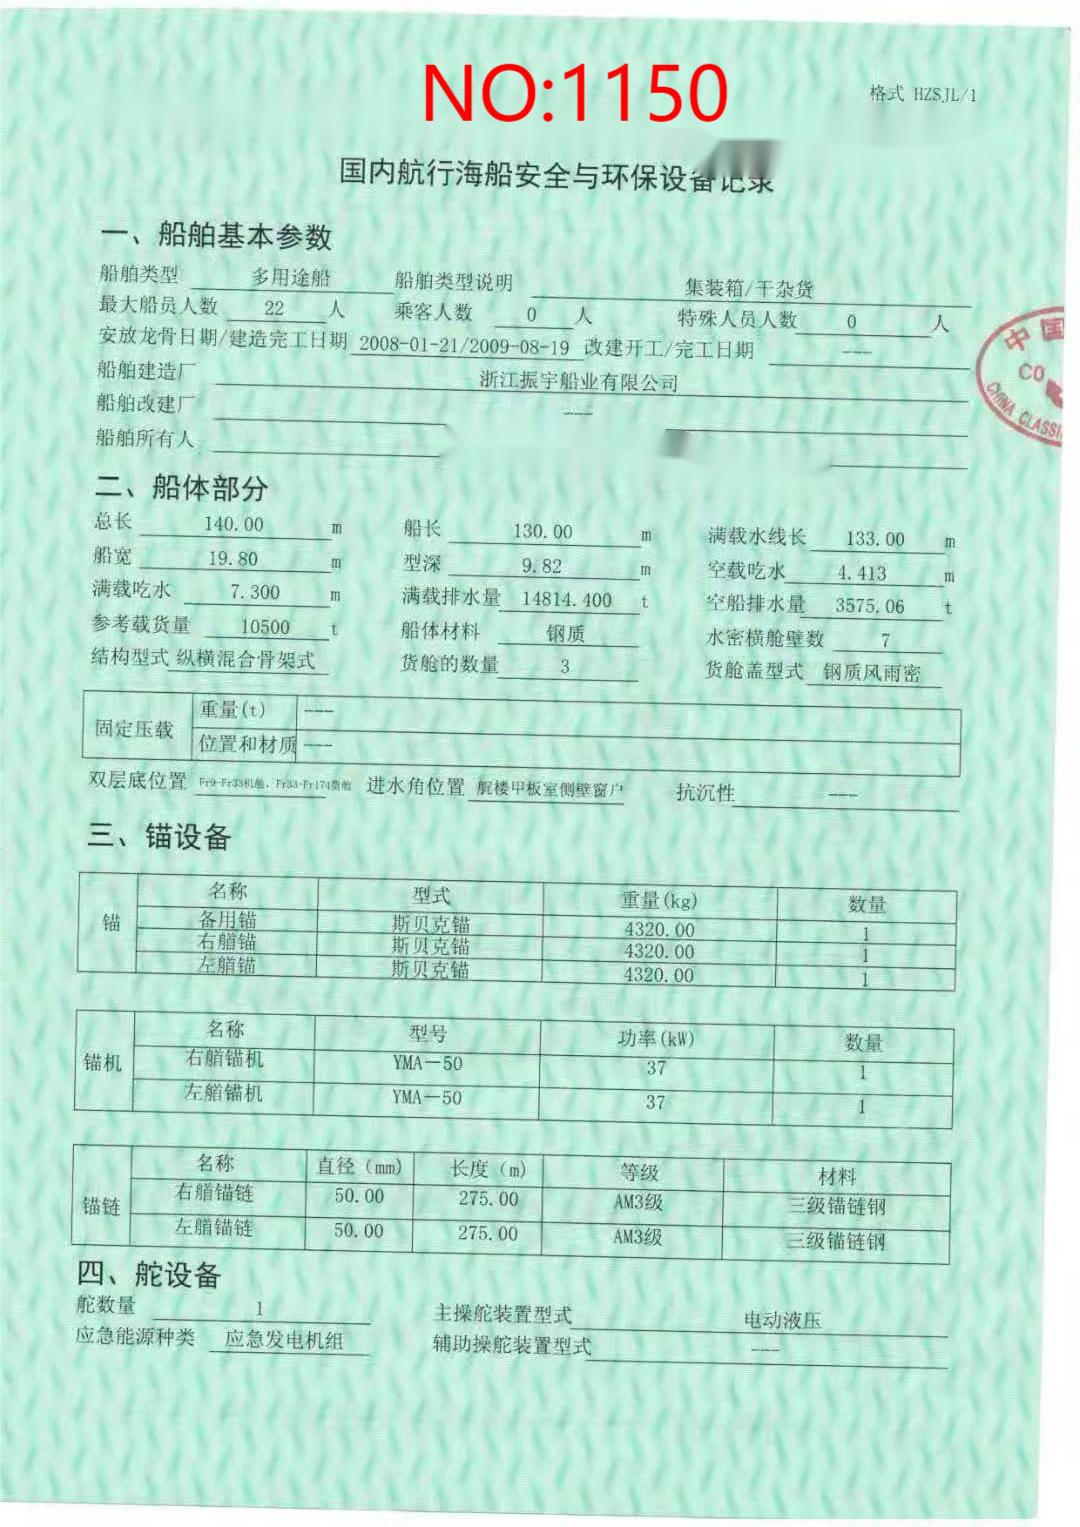 NO:1150
格式 HZSJL/1
国内航行海船安全与环保设备记录
一、船舶基本参数
船舶类型 多用途船 船舶类型说明 集装箱/干杂货
最大船员人数 22 人 乘客人数 0 人 特殊人员人数 0 人
安放龙骨日期/建造完工日期 2008-01-21/2009-08-19 改建开工/完工日期 ---
船舶建造厂 浙江振宇船业有限公司
船舶改建厂 ---
船舶所有人
中国
CO
CHINA CLASSI
二、船体部分
总长 140.00 m 船长 130.00 m 满载水线长 133.00 m
船宽 19.80 m 型深 9.82 m 空载吃水 4.413 m
满载吃水 7.300 m 满载排水量 14814.400 t 空船排水量 3575.06 t
参考载货量 10500 t 船体材料 钢质 水密横舱壁数 7
结构型式 纵横混合骨架式 货舱的数量 3 货舱盖型式 钢质风雨密
固定压载 重量(t) ---
位置和材质 ---
双层底位置 Fr9-Fr33机舱、Fr33-Fr174货舱 进水角位置 艉楼甲板室侧壁窗户 抗沉性 ---
三、锚设备
锚 名称 型式 重量(kg) 数量
备用锚 斯贝克锚 4320.00 1
右艏锚 斯贝克锚 4320.00 1
左艏锚 斯贝克锚 4320.00 1
锚机 名称 型号 功率(kW) 数量
右艏锚机 YMA-50 37 1
左艏锚机 YMA-50 37 1
锚链 名称 直径 (mm) 长度 (m) 等级 材料
右艏锚链 50.00 275.00 AM3级 三级锚链钢
左艏锚链 50.00 275.00 AM3级 三级锚链钢
四、舵设备
舵数量 1 主操舵装置型式 电动液压
应急能源种类 应急发电机组 辅助操舵装置型式 ---